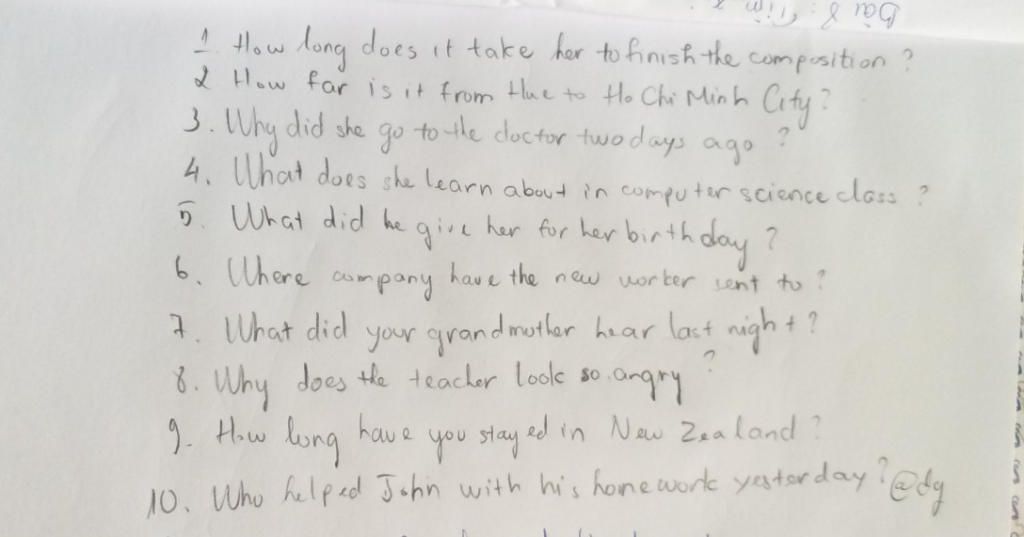 Bài 8: Tìm
1. How long does it take her to finish the composition?
2 How far is it from Hue to Ho Chi Minh City?
3. Why did she go to the doctor two days ago?
4. What does she learn about in computer science class?
5. What did he give her for her birthday?
6. Where company have the new worker sent to?
7. What did your grandmother hear last night?
8. Why does the teacher look so angry?
9. How long have you stayed in New Zealand?
10. Who helped John with his homework yesterday? @dg